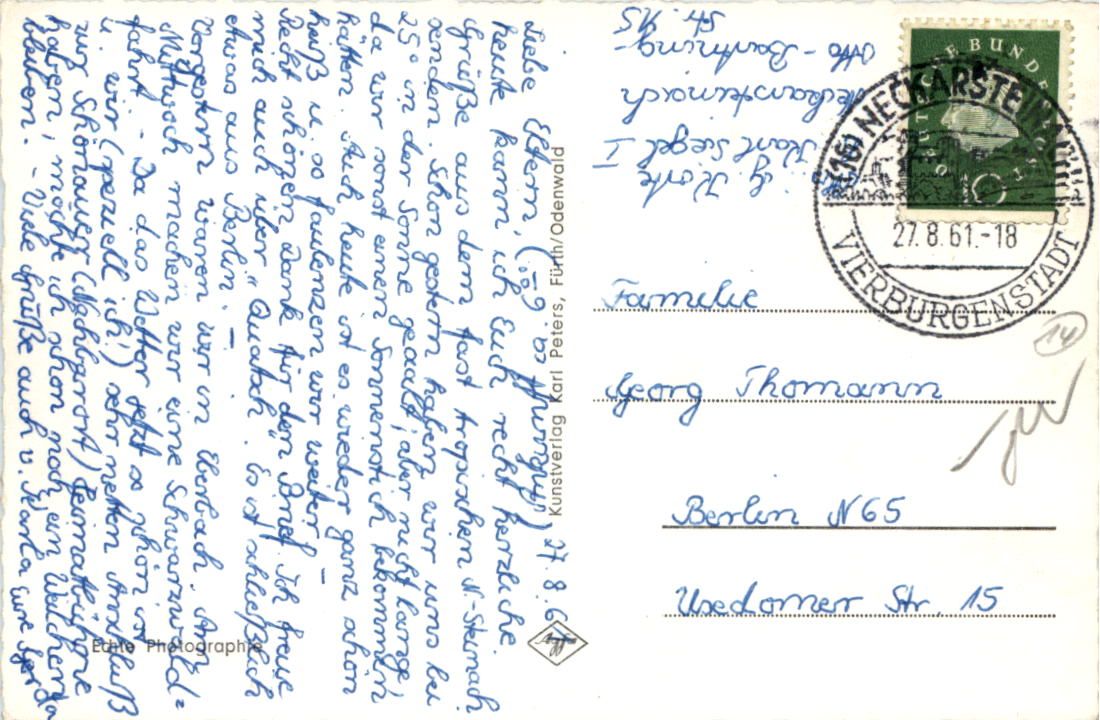 27. 8. 61
Liebe Eltern,
heute kann ich Euch recht herzliche
Grüße aus dem fast tropischen N.-Steinach
senden. Schon gestern haben wir uns bei
25° in der Sonne geaalt, aber nicht lange,
da wir sonst einen Sonnenstich bekommen
hätten. Auch heute ist es wieder ganz schön
heiß u. so faulenzen wir weiter! –
Recht schönen Dank für den Brief. Ich freue
mich auch über "Quatsch". Es ist schließlich
etwas aus Berlin. –
Vorgestern waren wir in Eberbach. Am
Mittwoch machen wir eine Schwarzwald=
fahrt. – Da das Wetter jetzt so schön ist
u. wir (speziell ich!) sehr netten Anschluß
zur Schönauer (Nachbarort)
haben, möchte ich schon noch ein Weilchen
bleiben. – Viele Grüße auch v. Karla Eure Gerda
Echte Photographie
Kunstverlag Karl Peters, Fürth/Odenwald
Agfa
G. Korte
Karl Siegel I
Neckarsteinach
Otto-Bartning-
Str. 15
DEUTSCHE BUNDESPOST
10
(16) NECKARSTEINACH
27.8.61.-18
VIERBURGENSTADT
14
Familie
Georg Thomann
Berlin N65
Usedomer Str. 15